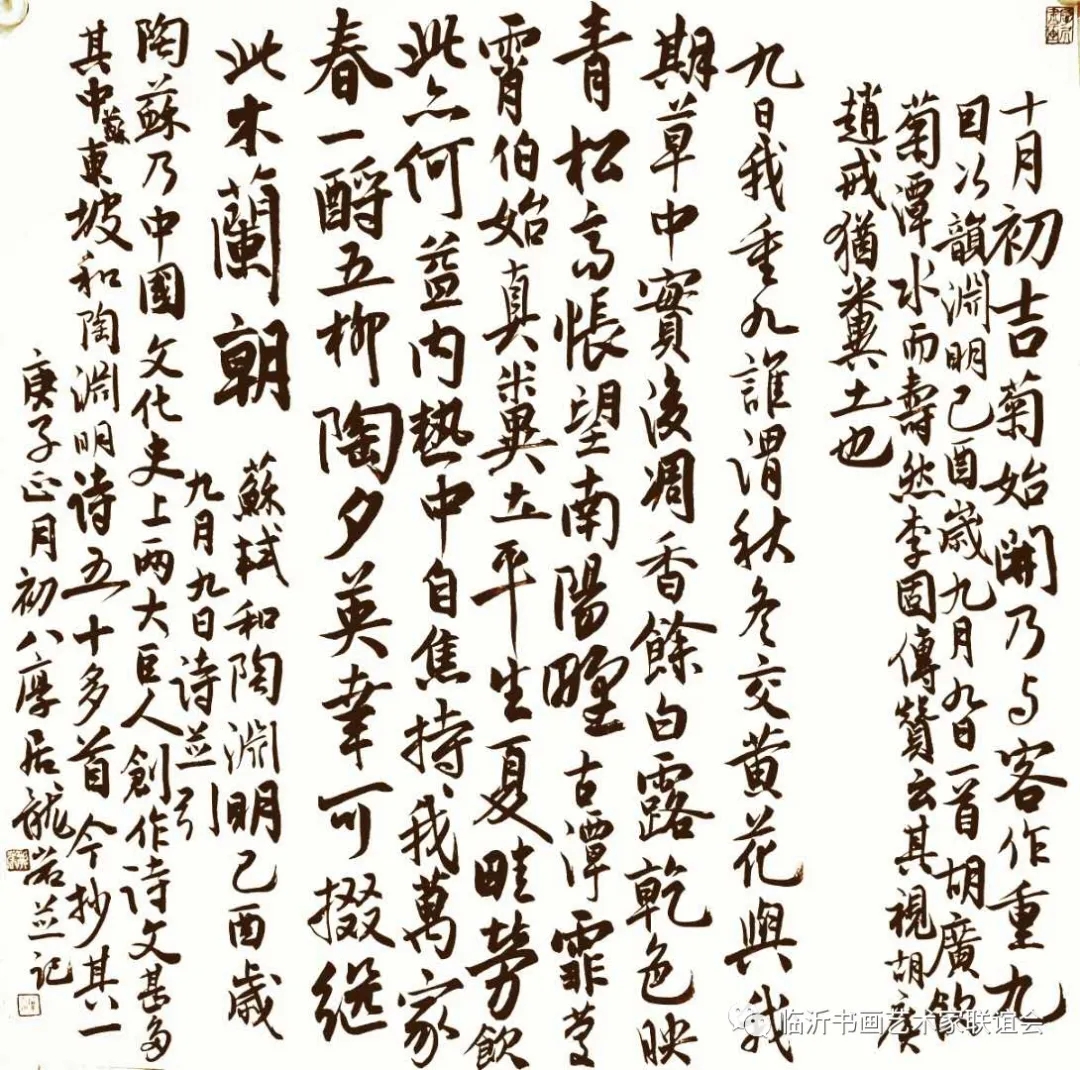 十月初吉菊始開乃与客作重九
因次韻淵明己酉歲九月九日一首胡廣飲
菊潭水而壽然李固傳贊云其視胡廣
趙戒猶糞土也
九日我重九誰谓秋冬交黄花與我
期草中實後凋香餘白露乾色映
青松高悵望南陽野古潭霏慶
霄伯始真糞土平生夏畦勞飲
此亦何益内熱中自焦持我萬家
春一酹五柳陶夕英幸可掇继
此木蘭朝
蘇軾和陶淵明己酉歲
九月九日詩並引
陶蘇乃中國文化史上两大巨人創作詩文甚多
其中蘇東坡和陶淵明诗五十多首今抄其一
庚子正月初八
居龍
並记
临沂书画艺术家联谊会